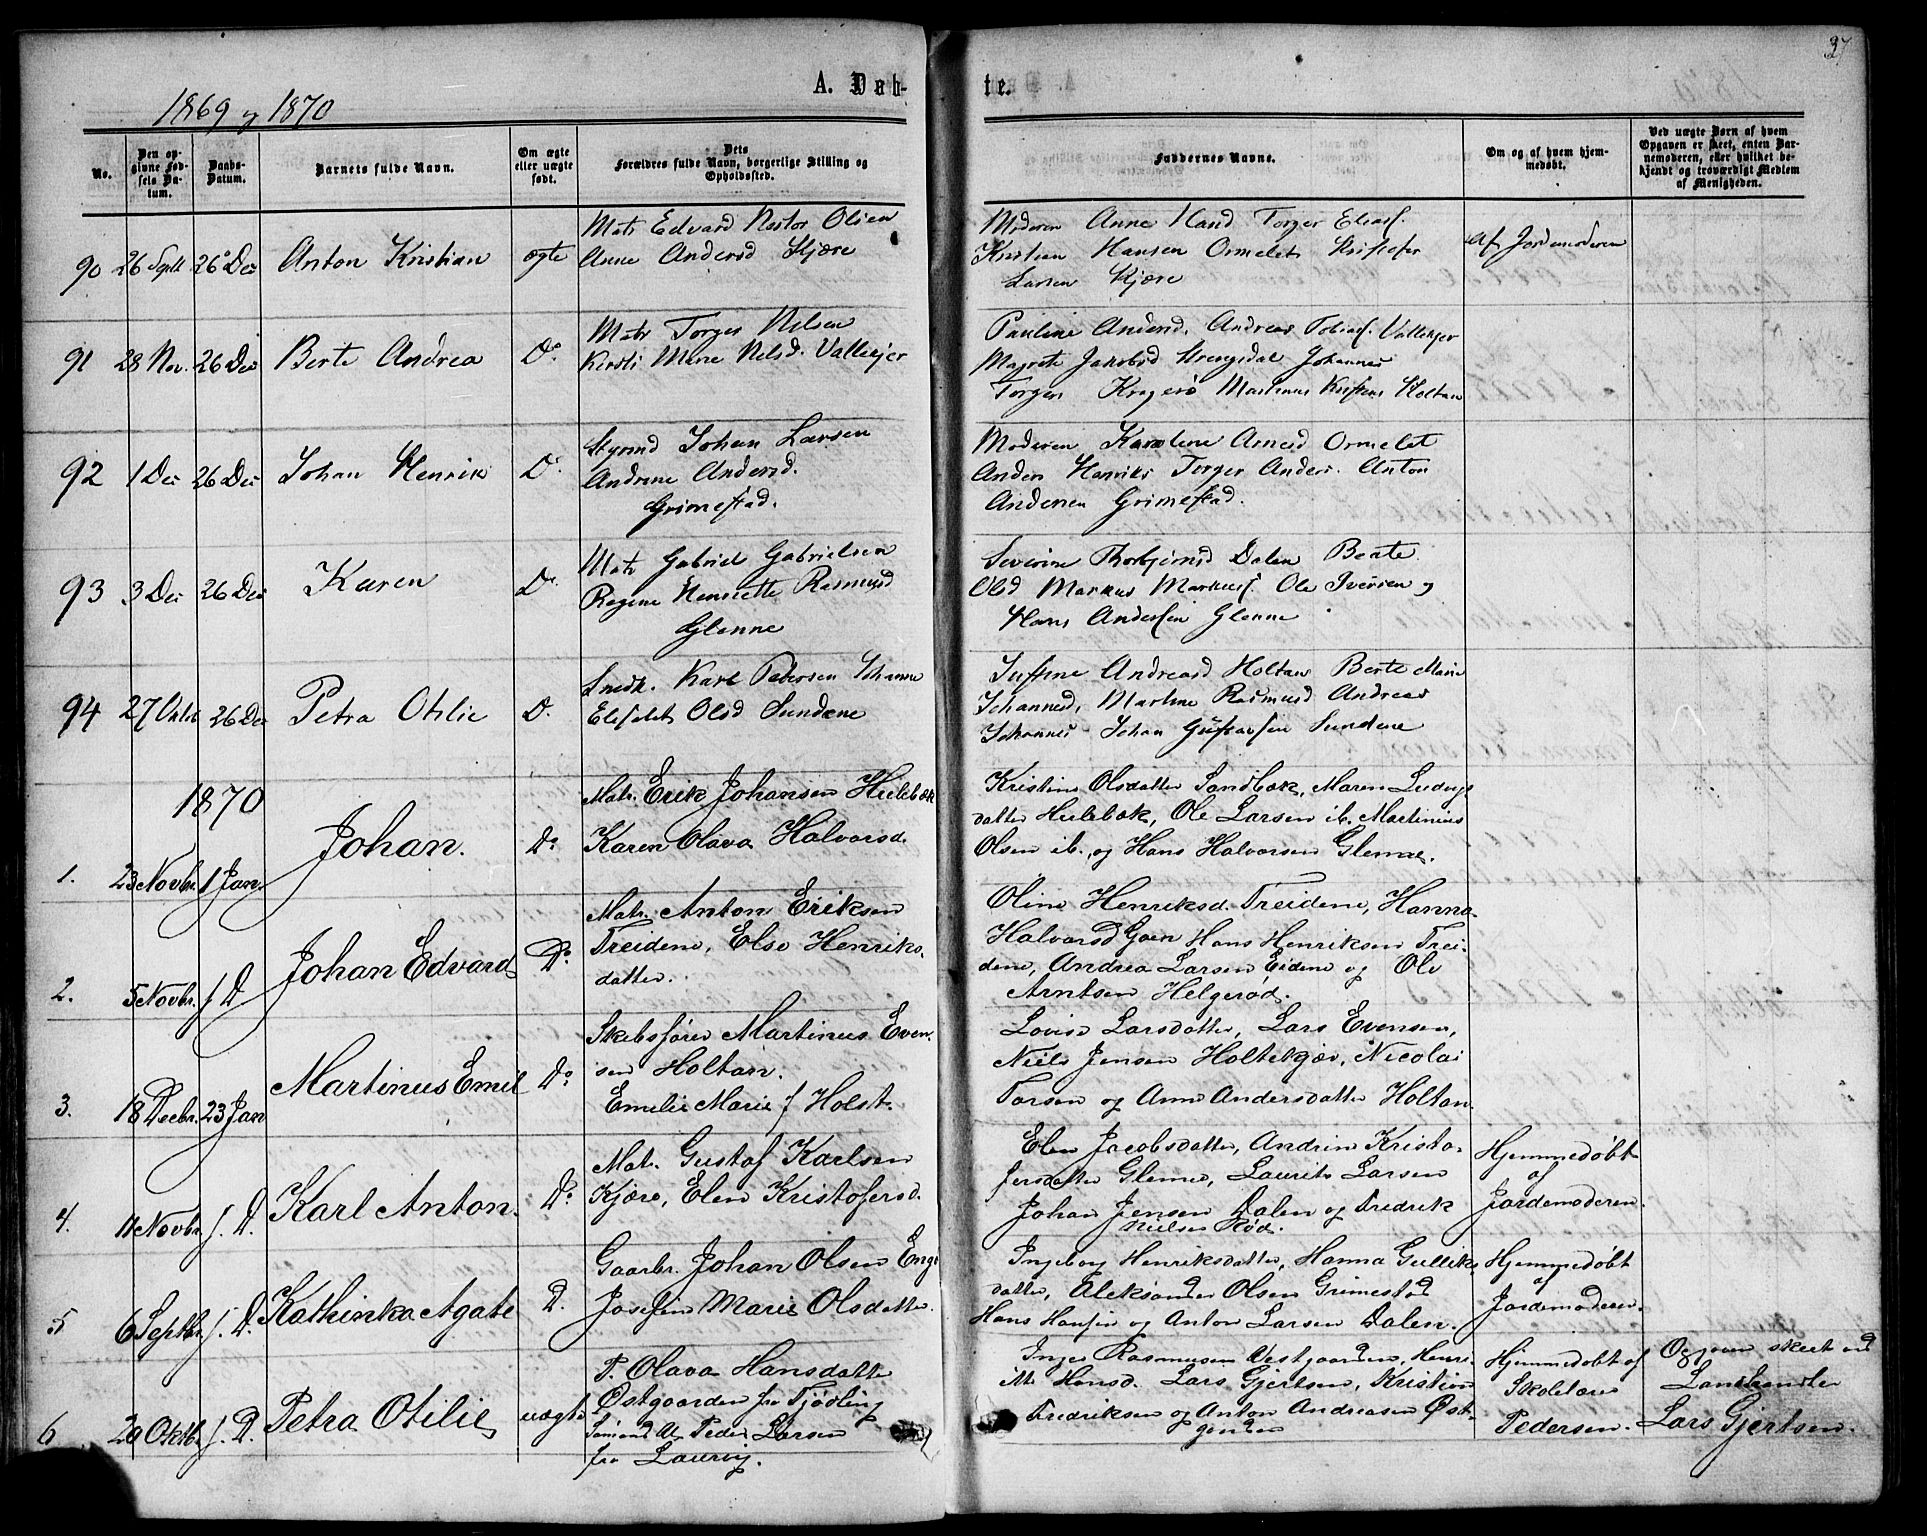 37
A. Døb-
te.
1869 og 1870
No.
Den opgivne Fødsels Datum.
Daabs-Datum.
Barnets fulde Navn.
Om ægte eller uægte født.
Dets Forældres fulde Navn, borgerlige Stilling og Opholdssted.
Faddernes Navne.
Om og af hvem hjemmedøbt.
Ved uægte Børn af hvem Opgaven er skeet, enten Barnemoderen, eller hvilket bekjendt og troværdigt Medlem af Menigheden.
90 26 Septr 26 Dec Anton Kristian ægte
Matr Edvard Nestor Olsen
Anne Andersd Kjære
Moderen Anne Torger Elias.
Kristian Hansen Ormelet Kristofer
Larsen Kjære
Af Jordemoderen
91 28 Nov. 26 Dec Berte Andrea Do
Matr Torger Nilsen
Kersti Marie Nelsd. Valleejer
Pauline Andersd. Andreas Tobias. Valleejer
Magrete Jakobsd Strengsdal Johannes
Torger Kragerö Martinus Holtan
92 1 Dec 26 Dec Johan Henrik Do
Styrmd Johan Larsen
Andrine Andersd.
Grimestad.
Moderen Karoline Arnesd Ormelet
Anders Henriks Torger Anders. Anton
Andersen Grimestad.
93 3 Dec 26 Dec Karen Do
Matr Gabriel Gabrielsen
Regine Henriette Rasmusd
Glenne
Severine Thorbjørnsd Dalen Berte
Olsd Markus Markus. Ole Iversen og
Hans Anderssen Glenne
94 27 Oktr 26 Dec Petra Otilie D.
Snedk. Karl Pedersen Johanne
Elisabet Olsd Sundene
Andreasd Holtan Berte Marie
Johannesd, Martine Rasmusd Andreas
Johannes Johan Gustavsen Sundene
1870
1. 23 Novbr. 1 Jan. Johan. Do
Matr. Erik Johansen Hulebæk
Karen Olava Halvorsd.
Kristine Olsdatter Sandbæk, Maren Ludvigs
datter Hulebæk, Ole Larsen ib. Martinius
Olsen ib., og Hans Halvorsen Glenne.
2. 5 Novbr. s. D Johan Edvard Do
Matr. Anton Eriksen
Treidene, Else Henriks-
datter.
Oline Henriksd. Treidene, Hanna
Halvorsd Gaen Hans Henriksen Trei-
dene, Andrea Larsen Eidene og Ole
Arntsen Helgerød.
3. 18 Decbr. 23 Jan Martinus Emil Do
Skibsfører Martinus Even-
sen Holtan.
Emelie Marie f Holst.
Lovise Larsdatter, Lars Evensen,
Niels Jensen Holtekjær, Nicolai
Torsen og Anne Andersdatter Holtan.
4. 11 Novbr. s. D. Karl Anton. Do
Mat. Gustaf Karlsen
Kjære, Elen Kristofersd.
Elen Jacobsdatter, Andrine Kristo-
fersdatter Glenne, Laurits Larsen
Johan Jensen Dalen og Fredrik
Nielsen Rød.
Hjemmedøbt
af
Jordemoderen.
5 6 Septbr. s. D. Kathinka Agate D.
Gaarbr. Johan Olsen Enge
Josefine Marie Olsdatter.
Ingeborg Henriksdatter, Hanna Gulliks
datter, Aleksander Olsen Grimestad
Hans Hansen og Anton Larsen Dalen.
Hjemmedøbt
af
Jordemoderen.
6 20 Oktb. s. D. Petra Otilie uægte
P. Olava Hansdatter
Østgaarden fra Tjødling
Sømand Al Peder Larsen
fra Laurvig.
Inger Rasmusen Vestgaarden, Henri-
itte Hansd. Lars Gjertsen, Kristian
Fredriksen og Anton Andreasen Øst-
gaarden
Hjemmedøbt af
Skolelærer
Pedersen.
Opgaven skeet ved
Landhandler
Lars Gjertsen.